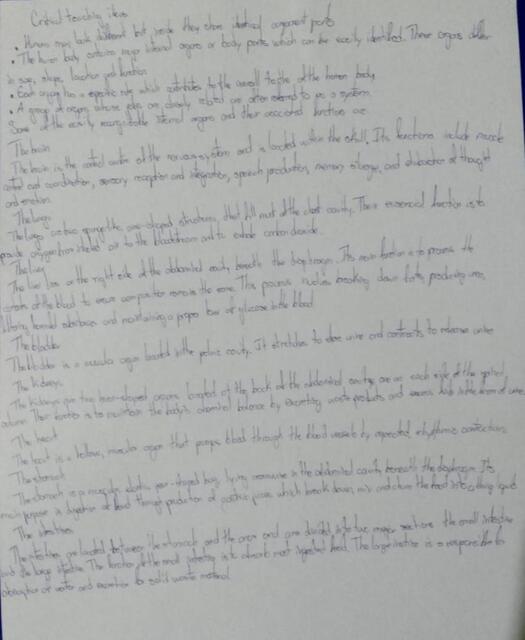 Critical teaching ideas
• Humans may look different but inside they share identical component parts
• The human body contains major internal organs or body parts which can be easily identified. These organs differ
in size, shape, location and function
• Each organ has a specific role which contributes to the overall of the human body
• A group of organs whose are closely related are often referred to as a system.
Some of the easily recognisable internal organs and their associated function are:
The brain
The brain is the control centre of the nervous system and is located within the skull. Its functions include muscle
control and coordination, sensory reception and integration, speech production, memory storage, and of thought
and emotion
The lungs
The lungs are two sponge-like, cone-shaped structures that fill most of the chest cavity. Their essential function is to
provide oxygen from inhaled air to the bloodstream and to exhale carbon dioxide.
The liver
The liver lies on the right side of the abdominal cavity beneath the diaphragm. Its main function is to process the
contents of the blood to ensure composition remains the same. This process involves breaking down fats, producing urea,
filtering harmful substances and maintaining a proper level of glucose in the blood
The bladder
The bladder is a muscular organ located in the pelvic cavity. It stretches to store urine and contracts to release urine
The kidneys
The kidneys are two bean-shaped organs located at the back of the abdominal cavity, one on each side of the spinal
column. Their function is to maintain the body's chemical balance by excreting waste products and excess fluid in the form of urine
The heart
The heart is a hollow, muscular organ that pumps blood through the blood vessels by repeated, rhythmic contractions
The stomach
The stomach is a muscular, elastic, pear-shaped bag, lying crosswise in the abdominal cavity beneath the diaphragm. Its
main purpose is digestion of food through production of gastric juices which break down, mix and churn the food into a thin liquid
The intestines
The intestines are located between the stomach and the anus and are divided into two major sections: the small intestine
and the large intestine. The function of the small intestine is to absorb most ingested food. The large intestine is responsible for
absorption of water and excretion of solid waste material